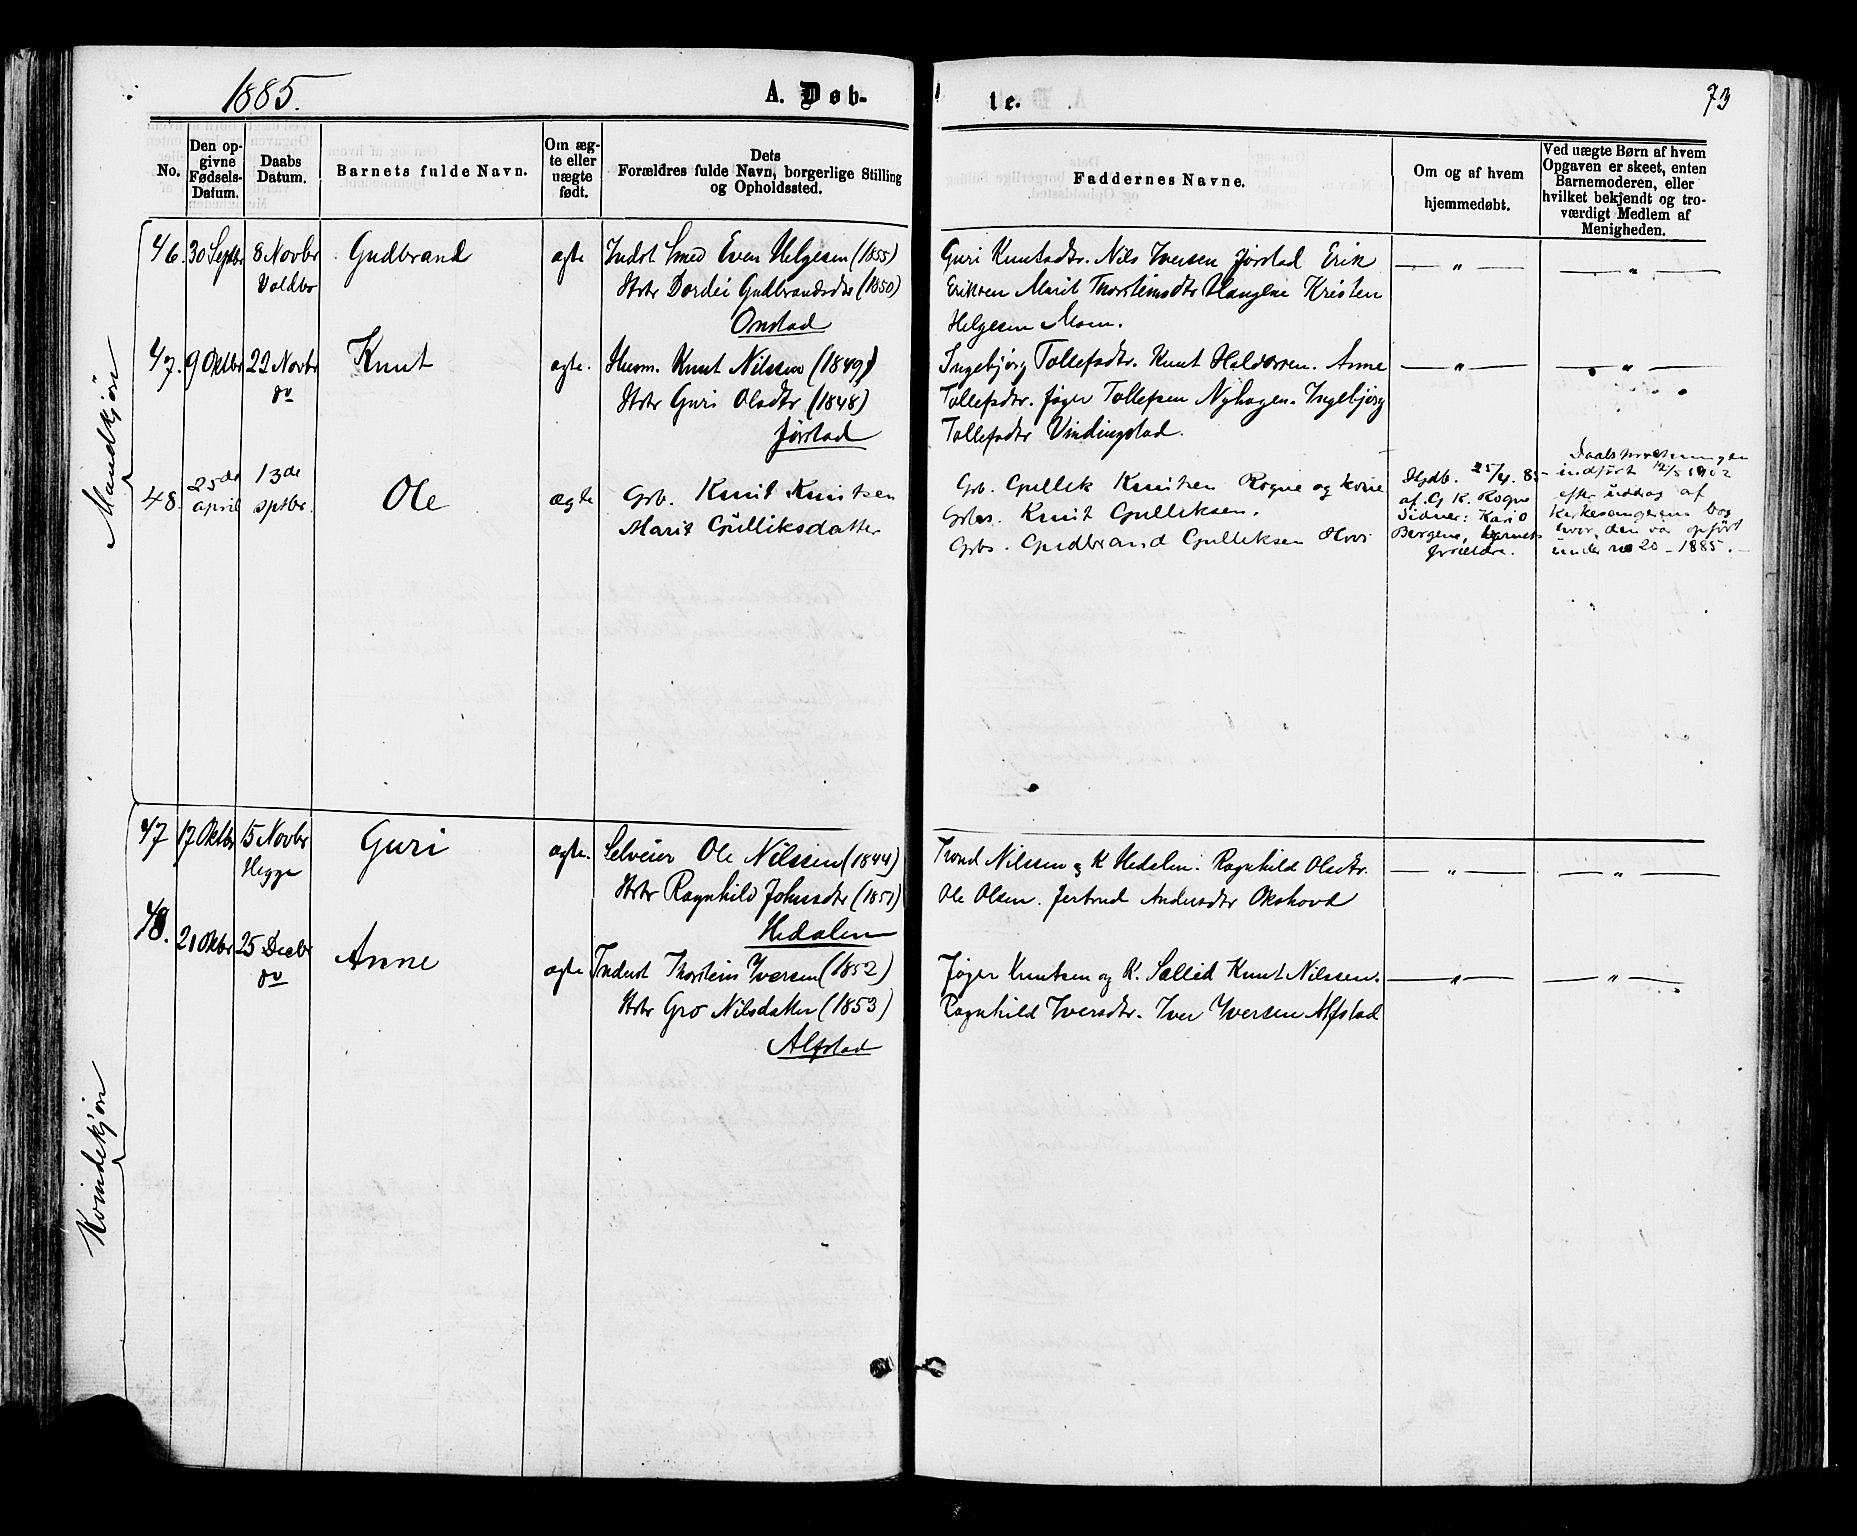 1885.
A. Døb-
te.
73
No.
Den op-
givne
Fødsels-
Datum.
Daabs
Datum.
Barnets fulde Navn.
Om æg-
te eller
uægte
født.
Dets
Forældres fulde Navn, borgerlige Stilling
og Opholdssted.
Faddernes Navne.
Om og af hvem
hjemmedøbt.
Ved uægte Børn af hvem
Opgaven er skeet, enten
Barnemoderen, eller
hvilket bekjendt og tro-
værdigt Medlem af
Menigheden.
Mandkjøn
46. 30 Septbr 8 Novbr Gudbrand ægte Inderst Smed Even Helgesen (1855)
Voldbo Hstr Dordei Gudbrandsdtr (1850)
Onstad
Guri Knutsdtr. Nils Iversen Jørstad Erik
Eriksen Marit Thorsteinsdtr Haugene Kristen
Helgesen Moen.
— " — — " —
47. 9 Oktbr 22 Novbr Knut ægte. Husm. Knut Nilssen (1849)
do Hstr Guri Olsdtr (1848)
Jørstad
Ingebjørg Tollefsdtr. Knut Haldorsen. Anne
Tollefsdtr. Jøger Tollefsen Nyhagen. Ingebjørg
Tollefsdtr Vindingstad.
— " — — " —
48. 25de april 13de sptbr. Ole ægte Grb. Knut Knutsen
Marit Gulliksdatter
Grb. Gullik Knutsen Rogne og kone
Grbs. Knut Gulliksen.
Grbs. Gudbrand Gulliksen Hovi
Hjdb. 25/4. 85
af G K. Rogne
Vidner: Kari O
Bergene, barnets
forældre.
Daabsforretningen
indført 12/5 1902
efter uddrag af
Kirkesangerens bog
hvor den var opført
under no 20 - 1885. —
Kvindekjøn
47 17 Oktbr 15 Novbr Guri ægte. Selveier Ole Nilssen (1844)
Hegge Hstr Ragnhild Johnsdtr (1851)
Hedalen
Trond Nilssen og K Hedalen. Ragnhild Olsdtr.
Ole Olsen. Jertrud Andersdtr Okshovd
— " — — " —
48. 21 Oktbr 25 Decbr Anne ægte Inderst Thorstein Iversen (1852)
do Hstr Gro Nilsdatter (1853)
Alfstad
Jøger Knutsen og K. Sælid Knut Nilssen.
Ragnhild Iversdtr. Iver Iversen Alfstad
— " — — " —